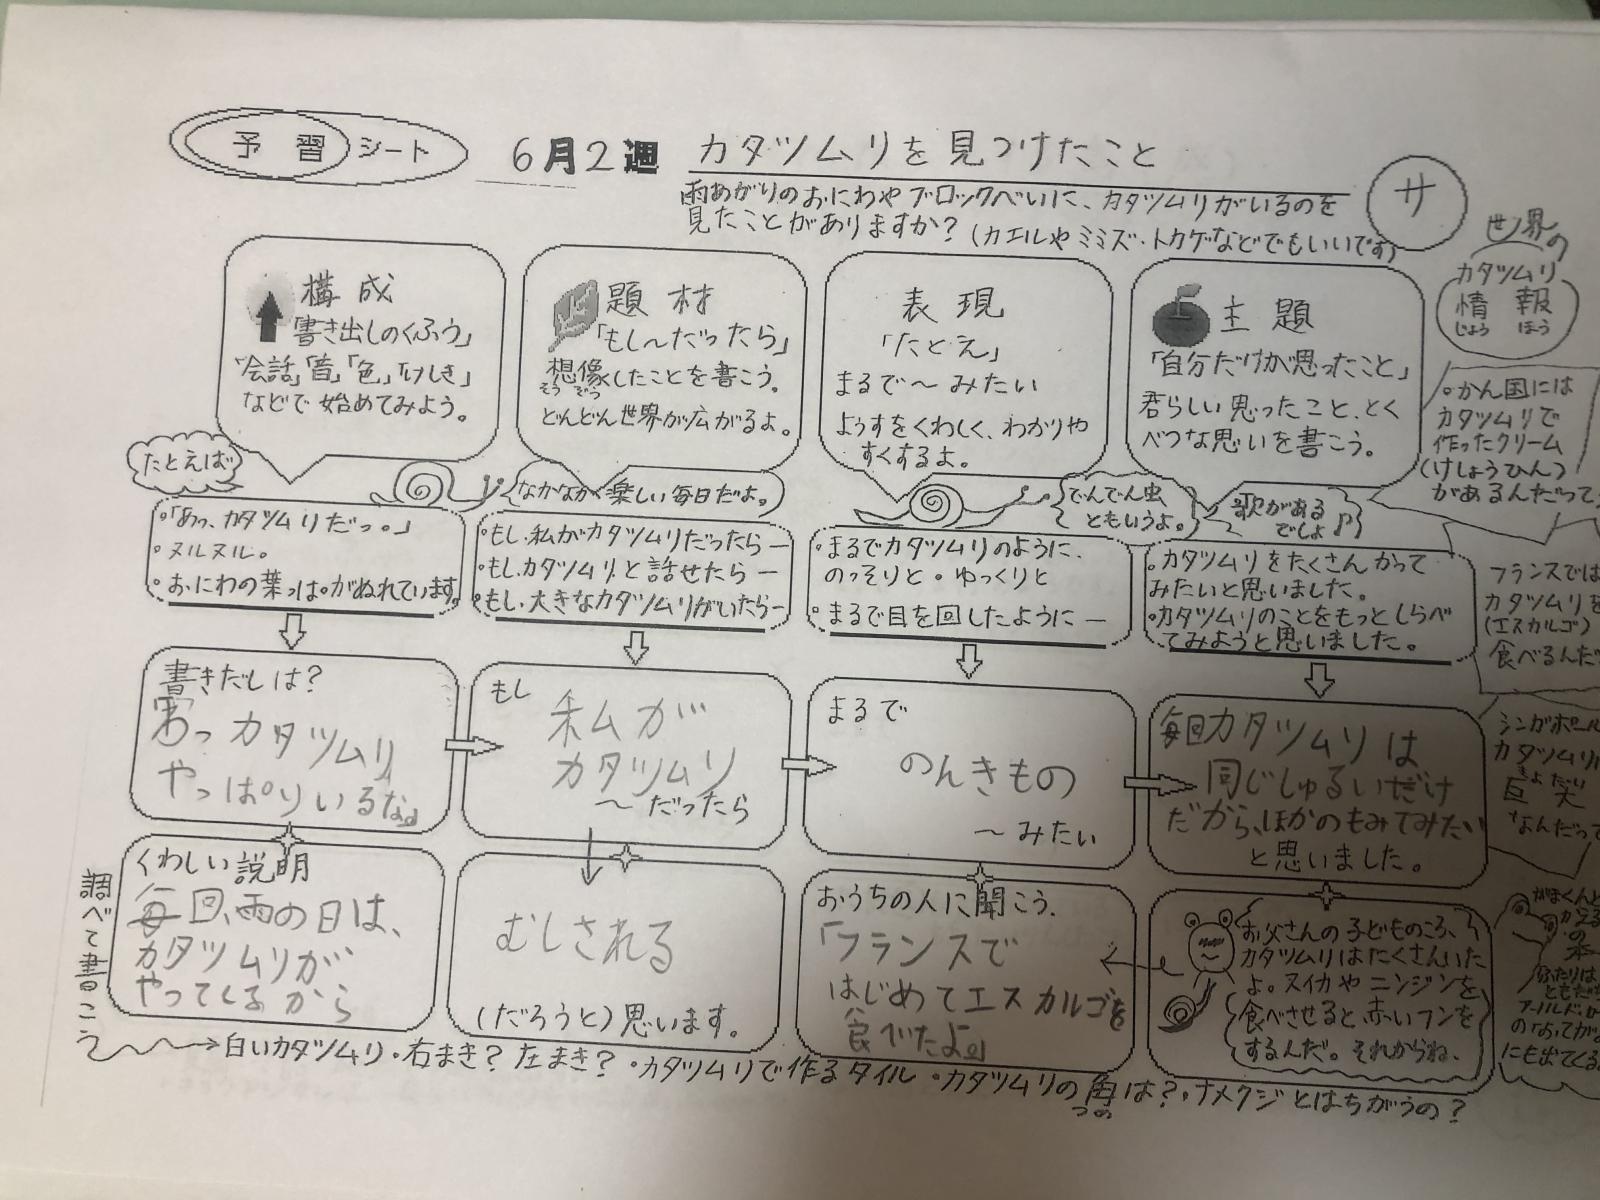 予習シート
6月2週 カタツムリを見つけたこと
雨あがりのおにわやブロックべいに、カタツムリがいるのを
見たことがありますか?(カエルやミミズ・トカゲなどでもいいです)
サ
構成
「書き出しのくふう」
「会話」「音」「色」「けしき」
などで始めてみよう。
題材
「もし〜だったら」
想像したことを書こう。
そうぞう
どんどん世界が広がるよ。
表現
「たとえ」
まるで〜みたい
ようすをくわしく、わかりや
すくするよ。
主題
「自分だけが思ったこと」
君らしい思ったこと、とく
べつな思いを書こう。
世界の
カタツムリ
情報
じょう ほう
。かん国には
カタツムリで
作ったクリーム
(けしょうひん)
があるんだって
たとえば
なかなか楽しい毎日だよ。
でんでん虫
ともいうよ。
歌がある
でしょ♪
・「あっ、カタツムリだっ。」
・ヌルヌル。
・おにわの葉っぱがぬれています。
・もし、私がカタツムリだったら―
・もし、カタツムリと話せたら―
・もし、大きなカタツムリがいたら―
・まるでカタツムリのように、
のっそりと・ゆっくりと
・まるで目を回したように―
・カタツムリをたくさんかって
みたいと思いました。
・カタツムリのことをもっとしらべ
てみようと思いました。
フランスでは
カタツムリを
(エスカルゴ)
食べるんだ
書きだしは?
カタツムリ
やっぱりいるな」
もし
私が
カタツムリ
〜だったら
まるで
のんきもの
〜みたい
毎回カタツムリは
同じしゅるいだけ
だから、ほかのもみてみたい
と思いました。
シンガポール
カタツムリ
なんだって
調べて書こう
くわしい説明
毎回、雨の日は、
カタツムリが
やってくるから
むしされる
(だろうと)思います。
おうちの人に聞こう。
「フランスで
はじめてエスカルゴを
食べたよ。」
お父さんの子どものころ、
カタツムリはたくさんいた
よ。スイカやニンジンを
食べさせると、赤いフンを
するんだ。それからね、
がまくんと
かえる
の
本
ふたりは
ともだち
にも出てくる
白いカタツムリ・右まき?左まき?・カタツムリで作るタイル・カタツムリの角は?・ナメクジとはちがうの?
つの